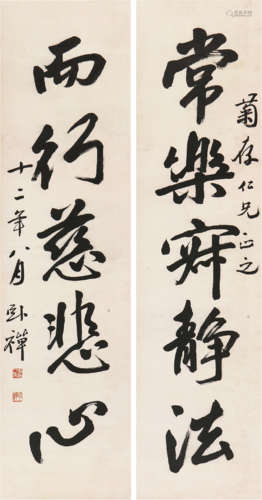 菊存仁兄正之
常樂寂靜法
而行慈悲心
十二年八月 臥禪